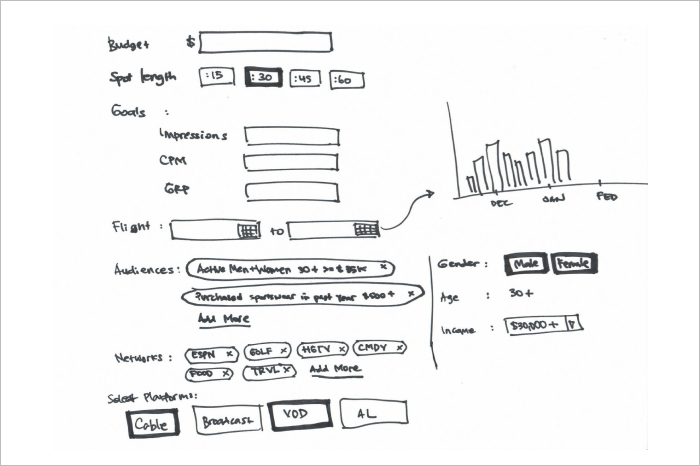 Budget $
Spot length :15 :30 :45 :60
Goals :
Impressions
CPM
GRP
Flight : to
DEC JAN FEB
Audiences : Active Men+Women 30+ >= $ 85K x
Purchased sportswear in past year $000+ x
Add More
Gender : Male Female
Age : 30+
Income : $30,000+
Networks : ESPN x GOLF x HGTV x CMDY x
FOOD x TRVL x Add More
Select Platforms:
Cable Broadcast VOD AL